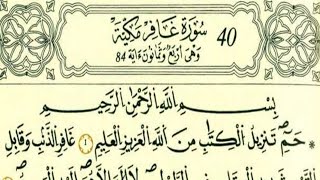 سُورَةُ غَافِرٍ مَكِّيَّةٌ
40
وَهِىَ أَرْبَعٌ وَثَمَانُونَ ءَايَةً 84
بِسْمِ ٱللَّهِ ٱلرَّحْمَٰنِ ٱلرَّحِيمِ
حمٓ تَنزِيلُ ٱلْكِتَٰبِ مِنَ ٱللَّهِ ٱلْعَزِيزِ ٱلْعَلِيمِ ١ غَافِرِ ٱلذَّنۢبِ وَقَابِلِ